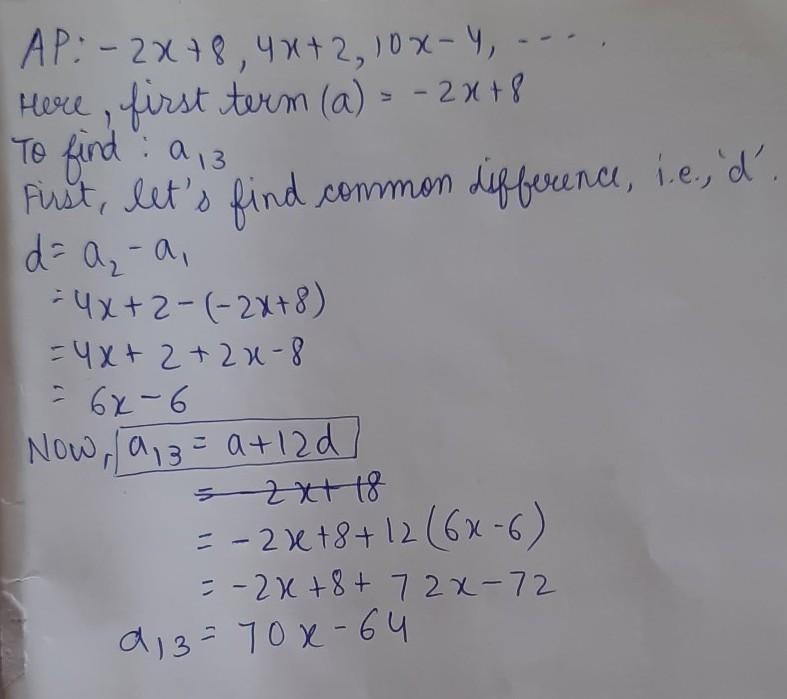 AP: -2x+8, 4x+2, 10x-4, ---- .
Here, first term (a) = -2x+8
To find : a₁₃
First, let's find common difference, i.e., 'd'.
d = a₂ - a₁
= 4x+2-(-2x+8)
= 4x+2+2x-8
= 6x-6
Now, a₁₃ = a+12d
= -2x+18
= -2x+8+12(6x-6)
= -2x+8+72x-72
a₁₃ = 70x-64